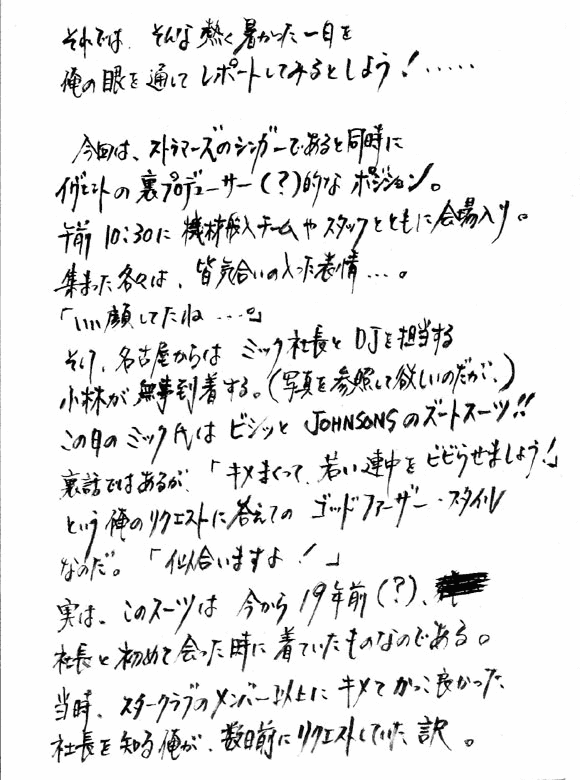 それでは、そんな熱く暑かった一日を
俺の眼を通してレポートしてみるとしよう!.....
今回は、ストラマーズのシンガーであると同時に
イヴェントの裏プロデューサー(?)的なポジション。
午前10:30に機材搬入チームやスタッフとともに会場入り。
集まった各々は、皆気合いの入った表情...。
「いい顔してたね...。」
そして、名古屋からはミック社長とDJを担当する
小林が無事到着する。(写真を参照して欲しいのだが、)
この日のミック氏はビシッとJOHNSONSのズートスーツ!!
裏話ではあるが、「キメまくって、若い連中をビビらせましょう!」
という俺のリクエストに答えてのゴッドファーザー・スタイル
なのだ。「似合いますよ!」
実は、このスーツは今から19年前(?)、
社長と初めて会った時に着ていたものなのである。
当時、スタークラブのメンバー以上にキメてかっこ良かった
社長を知る俺が、数日前にリクエストしていた訳。